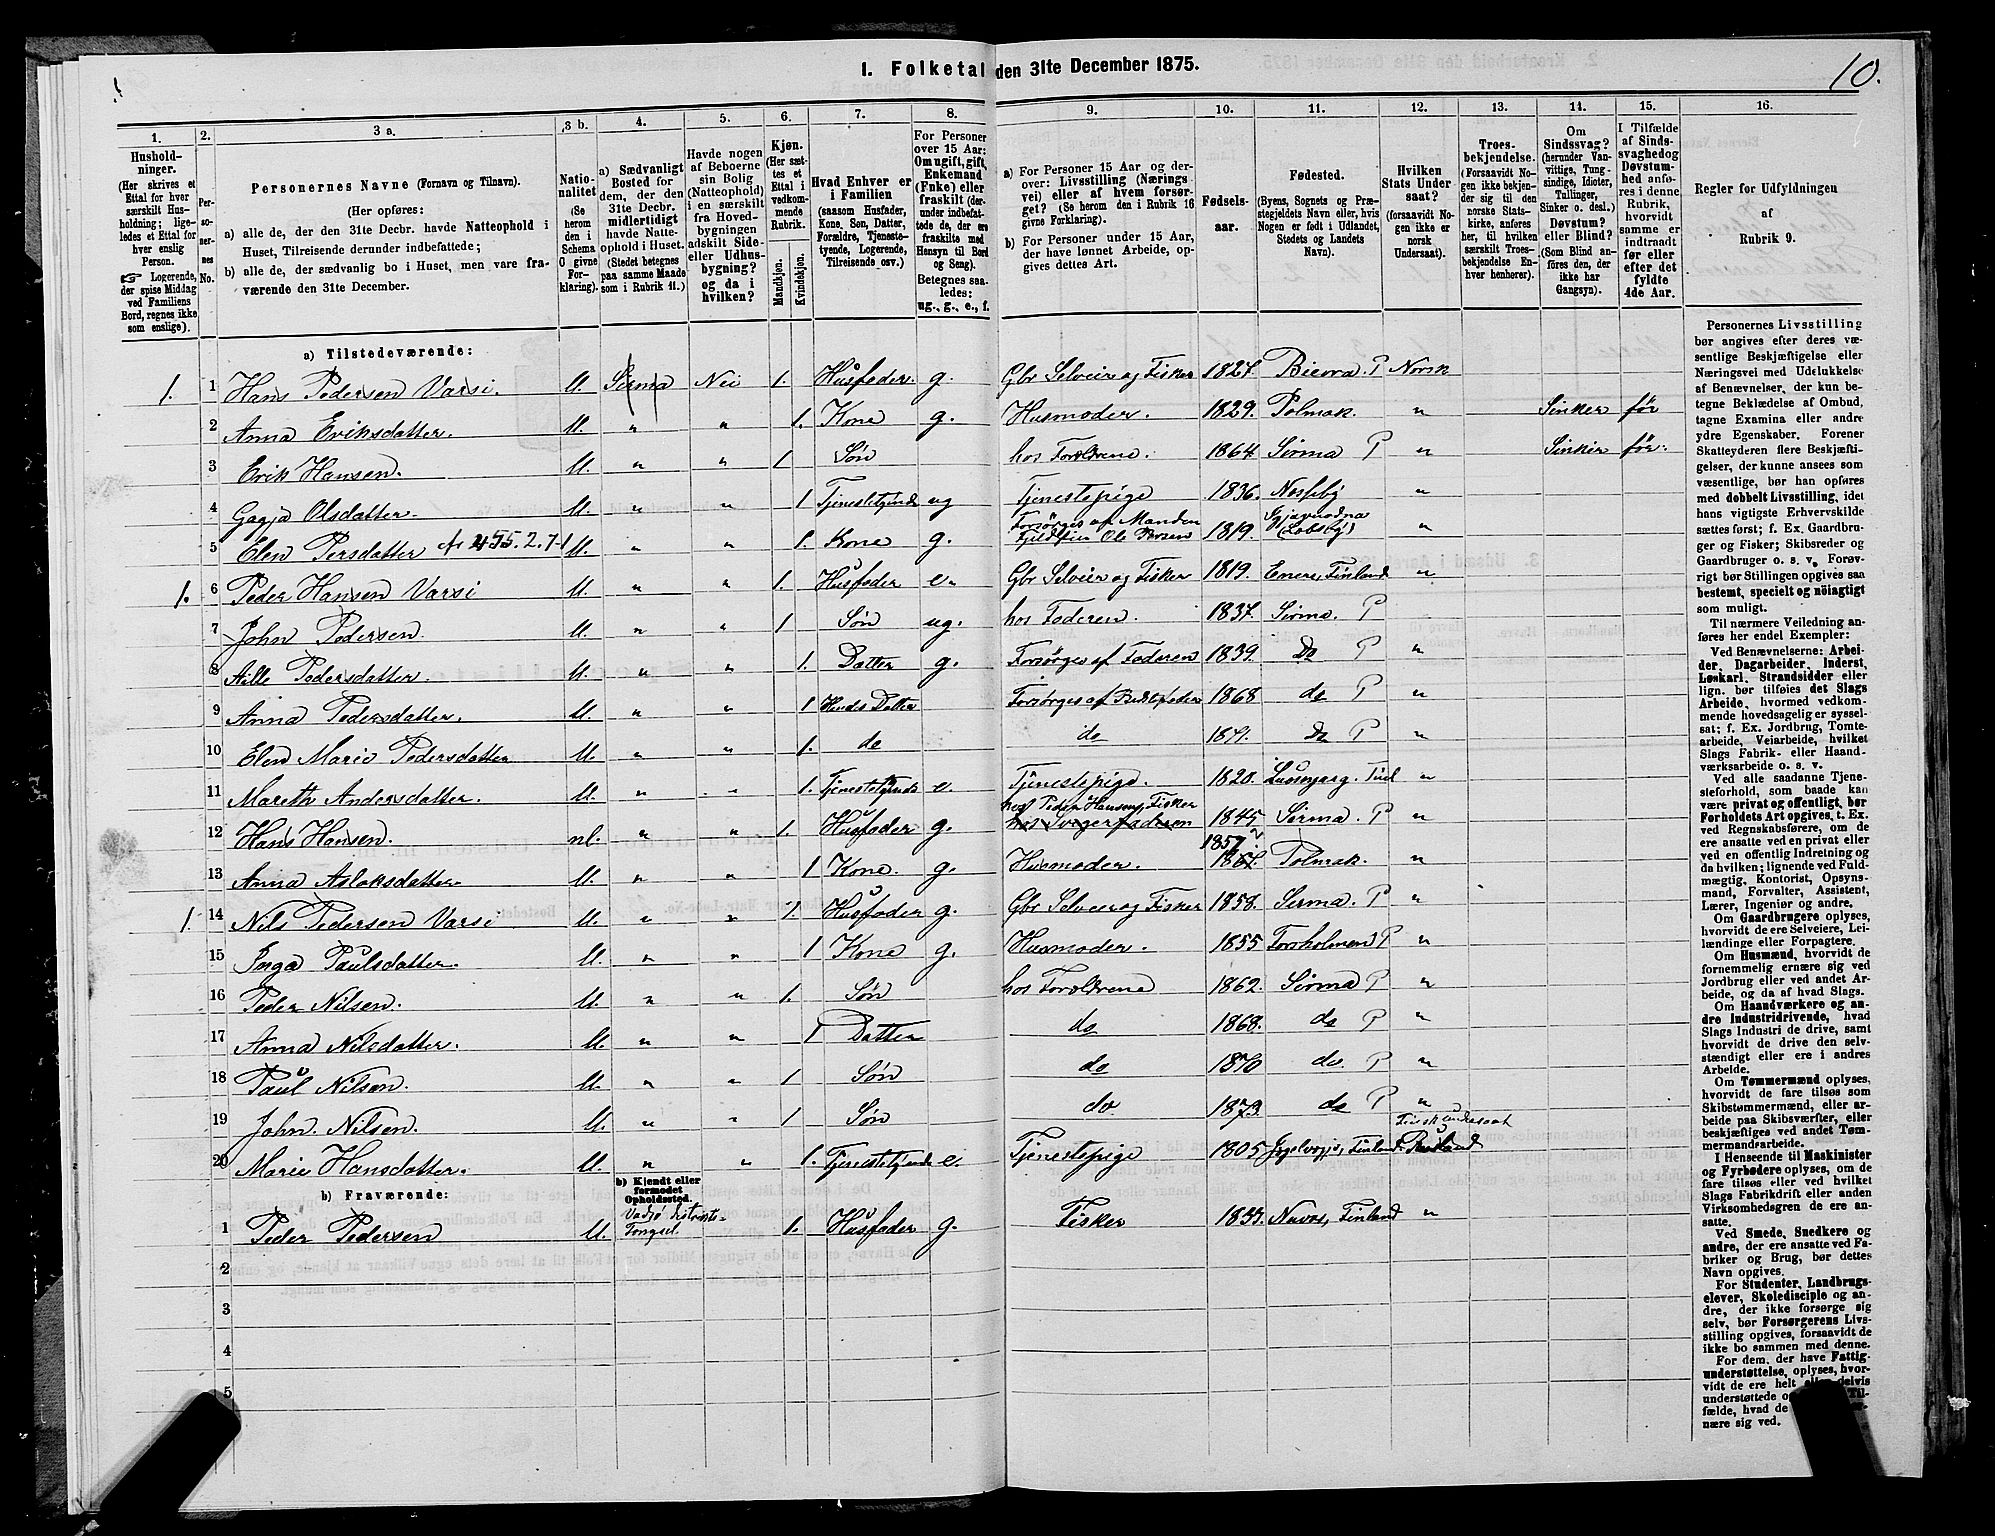 10.
1. Folketal den 31te December 1875.
1. Husholdninger. (Her skrives et Ettal for hver særskilt Husholdning; ligeledes et Ettal for hver enslig Person. Logerende, der spise Middag ved Familiens Bord, regnes ikke som enslige).
2. Personernes No.
3 a. Personernes Navne (Fornavn og Tilnavn).
(Her opføres:
a) alle de, der den 31te Decbr. havde Natteophold i Huset, Tilreisende derunder indbefattede;
b) alle de, der sædvanlig bo i Huset, men vare fraværende den 31te December.
3 b. Nationalitet (Se herom den i Schema O givne Forklaring).
4. a) Sædvanligt Bosted for dem, der den 31te Decbr. midlertidigt havde Natteophold i Huset. (Stedet betegnes paa samme Maade som i Rubrik 11.)
5. Havde nogen af Beboerne sin Bolig (Natteophold) i en særskilt fra Hovedbygningen adskilt Side- eller Udhusbygning? og da i hvilken?
6. Kjøn. (Her sættes et Ettal i vedkommende Rubrik. Mandkjøn. Kvindekjøn.
7. Hvad Enhver er i Familien (saasom Husfader, Kone, Søn, Datter, Forældre, Tjenestetyende, Logerende, Tilreisende osv.)
8. For Personer over 15 Aar: Om ugift, gift, Enkemand (Enke) eller fraskilt (derunder indbefattede de, der ere fraskilte med Hensyn til Bord og Seng). Betegnes saaledes: ug., g., e., f.
9. a) For Personer 15 Aar og derover: Livsstilling (Næringsvei) eller af hvem forsørget? (Se herom den i Rubrik 16 givne Forklaring).
b) For Personer under 15 Aar, der have lønnet Arbeide, opgives dettes Art.
10. Fødselsaar.
11. Fødested. (Byens, Sognets og Præstegjeldets Navn eller, hvis Nogen er født i Udlandet, Stedets og Landets Navn).
12. Hvilken Stats Undersaat? (forsaavidt Nogen ikke er norsk Undersaat).
13. Troesbekjendelse. (Forsaavidt Nogen ikke bekjender sig til den norske Statskirke, anføres her, til hvilken særskilt Troesbekjendelse Enhver henhører).
14. Om Sindssvag? (herunder Vanvittige, Tungsindige, Idioter, Tullinger, Sinker o. desl.) Døvstum? eller Blind? (Som Blind anføres den, der ikke har Gangsyn).
15. I Tilfælde af Sindssvaghed og Døvstumhed anføres i denne Rubrik, hvorvidt samme er indtraadt før eller efter det fyldte 4de Aar.
16. Regler for Udfyldningen af Rubrik 9.
a) Tilstedeværende:
1. 1 Hans Pedersen Varsi. U. Sirma Nei 1. Husfader. g. Gbr Selveier og Fisker 1827. P Norsk
2 Anna Eriksdatter. U. " " 1. Kone g. Husmoder. 1829. Polmak. " Sinker før
3 Erik Hansen. U. " " 1 Søn hos Forældrene. 1864. Sirma P " Sinker før.
4 Olsdatter. U. " " 1 Tjenestetyende ug Tjenestepige 1836. Nesseby "
5 Elen Persdatter 455.2.7. U. " " 1. Kone g. Forsørges af Manden Ole Persen 1819. "
1. 6 Peder Hansen Varsi U. " " 1. Husfader e. Gbr Selveier og Fisker 1819. Enere, Finland "
7 John Pedersen. U. " " 1 Søn ug. hos Faderen. 1837. Sirma. P "
8 Pedersdatter. U. " " 1. Datter g. Forsørges af Faderen 1839. Do P "
9 Anna Pedersdatter. U. " " 1 Hendes Datter Forsørges af Bedstefader 1868 do P "
10 Elen Marie Pedersdatter U. " " 1. do do 1871. Do P "
11 Mareth Andersdatter. U. " " 1. Tjenestetyende e. Tjenestepige. 1820. "
12 Hans Hansen. nl. " " 1. Husfader g. hos Peder Hansen, Fisker hos Svigerfaderen 1845 Sirma. P "
13 Anna Aslaksdatter. U. " " 1 Kone. g. Husmoder. 1857 Polmak. "
1. 14 Nils Pedersen Varsi U. " " 1. Husfader g. Gbr Selveier og Fisker 1858. Sirma. P "
15 Inga Paulsdatter. U. " " 1 Kone g. Husmoder. 1855 Forsholmen P "
16 Peder Nilsen. U. " " 1. Søn hos Forældrene 1862. Sirma P "
17 Anna Nilsdatter. U. " " 1 Datter do 1868. do P "
18 Paul Nilsen. U. " " 1 Søn do 1870 do. P "
19 John. Nilsen. U. " " 1 Søn do 1873. do P "
20 Marie Hansdatter. U. " " 1. Tjenestetyende e. Tjenestepige 1805 Finland Finsk undersaat
b) Fraværende:
b) Kjendt eller formodet Opholdssted.
1 Peder Pedersen U. Vadsø 1. Husfader g. Fisker Finland "
2
3
4
5
Personernes Livsstilling bør angives efter deres væsentlige Beskjæftigelse eller Næringsvei med Udelukkelse af Benævnelser, der kun betegne Beklædelse af Ombud, tagne Examina eller andre ydre Egenskaber. Forener Skatteyderen flere Beskjæftigelser, der kunne ansees som væsentlige, bør han opføres med dobbelt Livsstilling, idet hans vigtigste Erhvervskilde sættes først; f. Ex. Gaardbruger og Fisker; Skibsreder og Gaardbruger o. s. v. Forøvrigt bør Stillingen opgives saa bestemt, specielt og nöiagtigt som muligt.
Til nærmere Veiledning anføres her endel Exempler:
Ved Benævnelserne: Arbeider, Dagarbeider, Inderst, Løskarl, Strandsidder eller lign. bør tilføies det Slags Arbeide, hvormed vedkommende hovedsagelig er sysselsat; f. Ex. Jordbrug, Tomtearbeide, Veiarbeide, hvilket Slags Fabrik- eller Haandværksarbeide o. s. v.
Ved alle saadanne Tjenesteforhold, som baade kan være privat og offentligt, bør Forholdets Art opgives, t. Ex. ved Regnskabsførere, om de ere ansatte ved en privat eller ved en offentlig Indretning og da hvilken; lignende ved Fuldmægtig, Kontorist, Opsynsmand, Forvalter, Assistent, Lærer, Ingeniør og andre.
Om Gaardbrugere oplyses, hvorvidt de ere Selveiere, Leilændinge eller Forpagtere.
Om Husmænd, hvorvidt de fornemmelig ernære sig ved Jordbrug eller ved andet Arbeide, og da af hvad Slags.
Om Haandværkere og andre Industridrivende, hvad Slags Industri de drive, samt hvorvidt de drive den selvstændigt eller ere i andres Arbeide.
Om Tømmermænd oplyses, hvorvidt de fare tilsøs som Skibstømmermænd, eller arbeide paa Skibsværfter, eller beskjæftiges ved andet Tømmermandsarbeide.
I Henseende til Maskinister og Fyrbødere oplyses, om de fare tilsøs eller ved hvilket Slags Fabrikdrift eller anden Virksomhed den ere ansatte.
Ved Smede, Snedkere og andre, der ere ansatte ved Fabriker og Brug, bør dettes Navn opgives.
For Studenter, Landbrugselever, Skoledisciple og andre, der ikke forsørge sig selv, bør Forsørgerens Livsstilling opgives, forsaavidt de ikke bo sammen med denne.
For dem, der have Fattigunderstøttelse, oplyses, hvorvidt de ere helt delvis understøttede